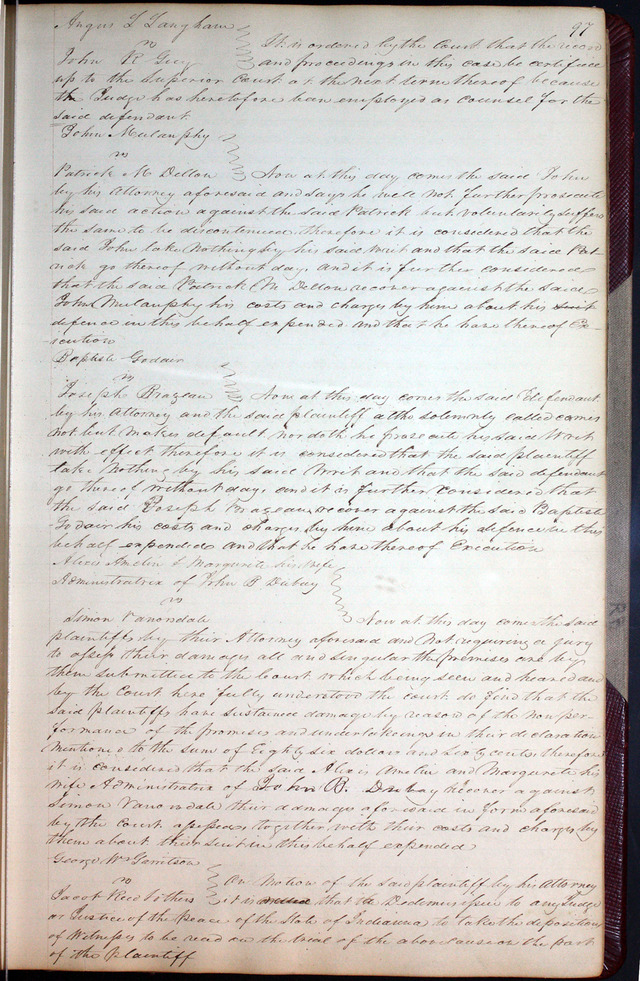 97
Angus L Langham
vs
It is ordered by the Court that the record
John R Guy and proceedings in this case be certified
up to the Superior Court at the next term thereof because
the Judge has heretofore been employed as counsel for the
said defendant
John Mulanphy
vs
Patrick M Dillon Now at this day comes the said John
by his Attorney aforesaid and says he will not further prosecute
his said action against the said Patrick but voluntarily suffers
the same to be discontinued therefore it is considered that the
said John take nothing by his said writ and that the said Pat-
rick go thereof without day, and it is further considered
that the said Patrick M Dillon recover against the said
John Mulanphy his costs and charges by him about his
defence in this behalf expended and that he have thereof Ex-
ecution
Baptiste Godair
vs
Joseph Brazeau Now at this day comes the said Defendant
by his Attorney and the said plaintiff altho solemnly called comes
not but makes default nor doth he prosecute his said Writ
with effect therefore it is considered that the said plaintiff
take nothing by his said Writ and that the said defendant
go thereof without day, and it is further considered that
the said Joseph Brazeau recover against the said Baptiste
Godair his costs and charges by him about his defence in this
behalf expended and that he have thereof Execution
Alexis Amelin & Margurete his wife
Administratrix of John B Dubay
vs
Simon Vanorsdale Now at this day comes the said
plaintiffs by their Attorney aforesaid and not requiring a jury
to assess their damages all and singular the premises are by
them submitted to the Court which being seen and heard and
by the Court here fully understood the court do find that the
said plaintiffs have sustained damage by reason of the nonper-
formance of the promises and undertakings in their declaration
mentioned to the sum of Eighty six dollars and sixty cents therefore
it is considered that the said Alexis Amelin and Margurete his
wife Administratrix of John B. Dubay recover against
Simon Vanorsdale their damage aforesaid in form aforesaid
by the Court assessed together with their costs and charges by
them about their suit in this behalf expended
George W Garritson
vs
On motion of the said plaintiff by his Attorney
Jacob Reed & others it is that a Dedimus issue to any Judge
or Justice of the Peace of the State of Indianna to take the deposition
of Witnesses to be read on the trial of the above cause on the part
of the plaintiff